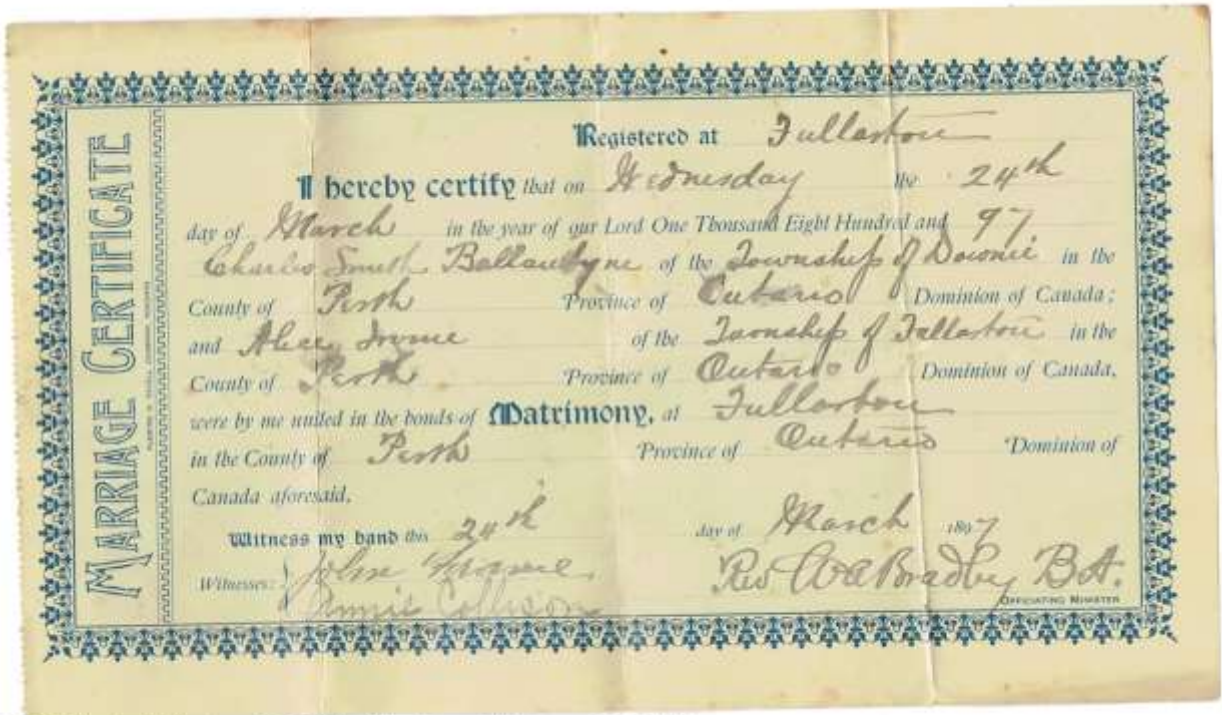 MARRIAGE CERTIFICATE
Registered at Fullarton
I hereby certify that on Wednesday the 24th
day of March in the year of our Lord One Thousand Eight Hundred and 97
Charles Smith Ballantyne of the Township of Downie in the
County of Perth Province of Ontario Dominion of Canada;
and Alice Irvine of the Township of Fullarton in the
County of Perth Province of Ontario Dominion of Canada,
were by me united in the bonds of Matrimony, at Fullarton
in the County of Perth Province of Ontario Dominion of
Canada aforesaid.
Witness my hand this 24th day of March 1897
Witnesses: John Irvine Rev W A Bradley B.A.
Annie Collison OFFICIATING MINISTER